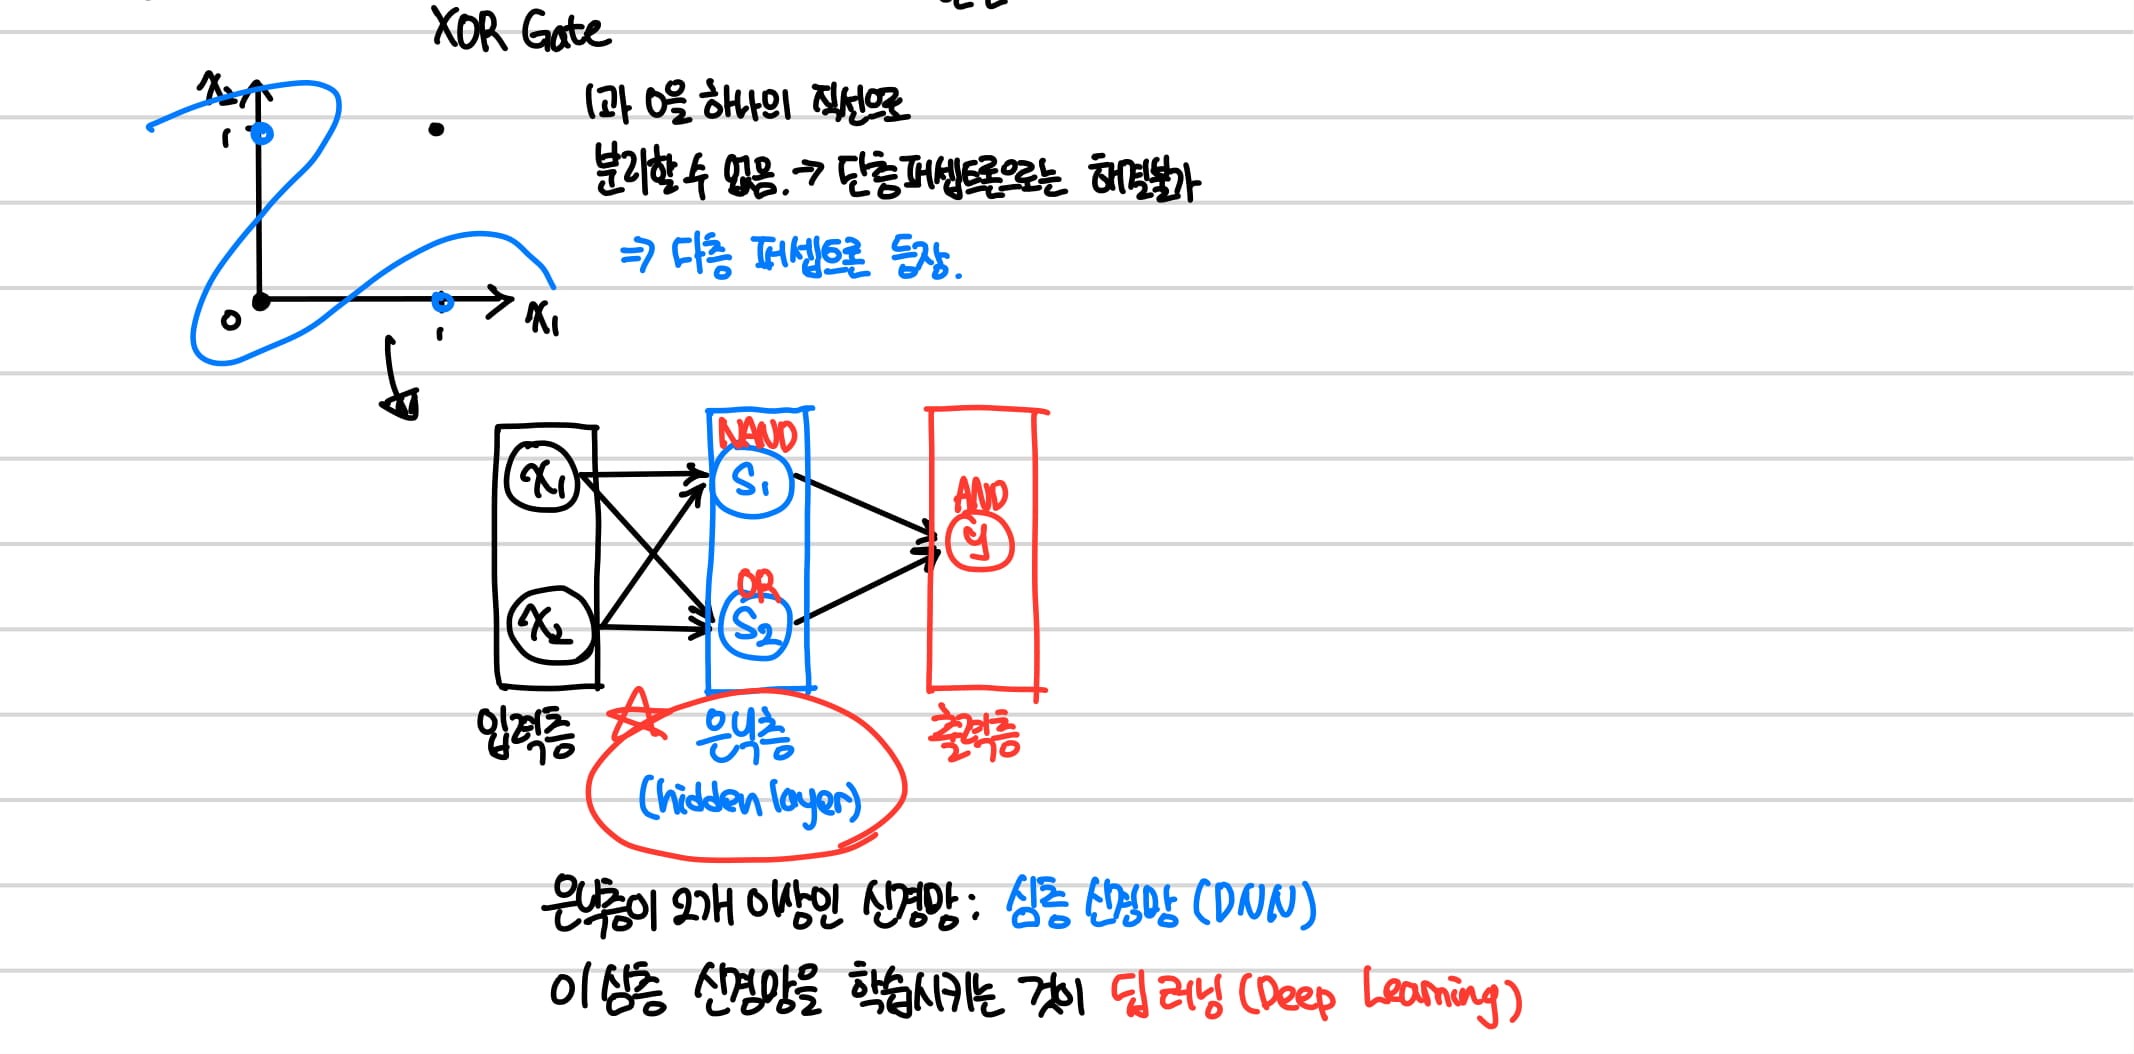 XOR Gate
x₂
1
0
1
x₁
1과 0을 하나의 직선으로
분리할 수 없음. → 단층 퍼셉트론으로는 해결불가
⇒ 다층 퍼셉트론 등장.
x₁
x₂
입력층
NAND
S₁
OR
S₂
은닉층
(hidden layer)
AND
y
출력층
은닉층이 2개 이상인 신경망: 심층 신경망 (DNN)
이 심층 신경망을 학습시키는 것이 딥러닝 (Deep Learning)